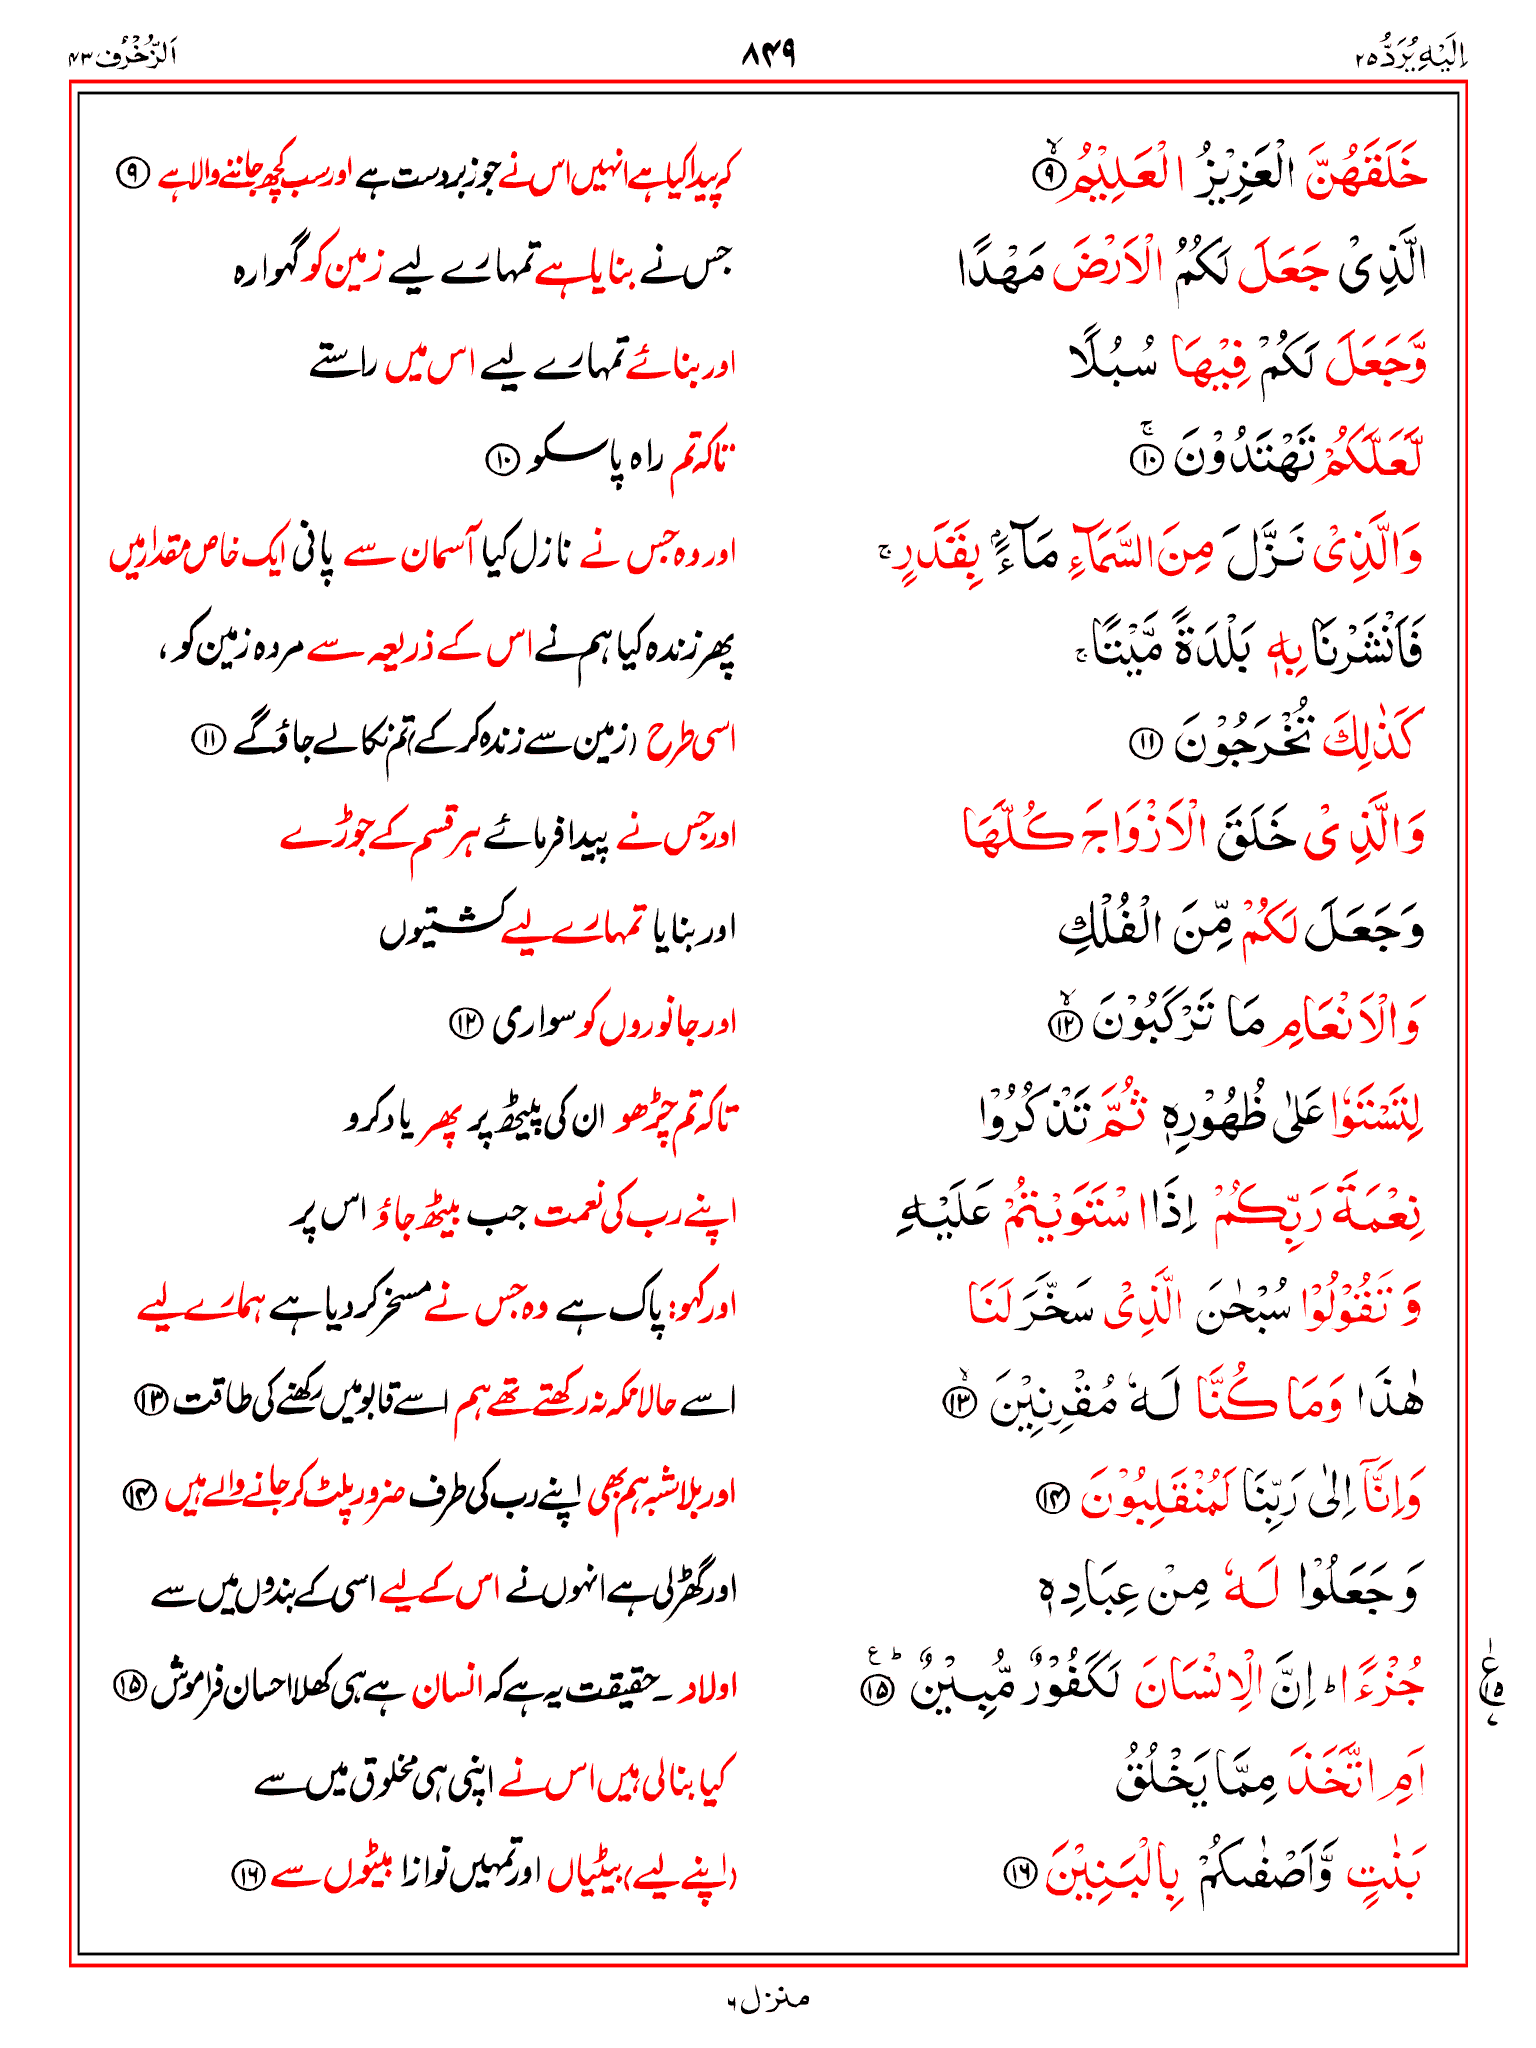 اِلَيْهِ يُرَدُّ ۲۵
۸۴۹
اَلزُّخْرُف ۴۳
خَلَقَهُنَّ الْعَزِيْزُ الْعَلِيْمُ ۙ﴿۹﴾
کہ پیدا کیا ہے انہیں اس نے جو زبردست ہے اور سب کچھ جاننے والا ہے ﴿۹﴾
الَّذِىْ جَعَلَ لَكُمُ الْاَرْضَ مَهْدًا
جس نے بنایا ہے تمہارے لیے زمین کو گہوارہ
وَّجَعَلَ لَكُمْ فِيْهَا سُبُلًا
اور بنائے تمہارے لیے اس میں راستے
لَّعَلَّكُمْ تَهْتَدُوْنَ ۚ﴿۱۰﴾
تاکہ تم راہ پا سکو ﴿۱۰﴾
وَالَّذِىْ نَزَّلَ مِنَ السَّمَآءِ مَآءًۢ بِقَدَرٍ ۚ
اور وہ جس نے نازل کیا آسمان سے پانی ایک خاص مقدار میں
فَاَنْشَرْنَا بِهٖ بَلْدَةً مَّيْتًا ۚ
پھر زندہ کیا ہم نے اس کے ذریعہ سے مردہ زمین کو،
كَذٰلِكَ تُخْرَجُوْنَ ﴿۱۱﴾
اسی طرح (زمین سے زندہ کر کے) تم نکالے جاؤ گے ﴿۱۱﴾
وَالَّذِىْ خَلَقَ الْاَزْوَاجَ كُلَّهَا
اور جس نے پیدا فرمائے ہر قسم کے جوڑے
وَجَعَلَ لَكُمْ مِّنَ الْفُلْكِ
اور بنایا تمہارے لیے کشتیوں
وَالْاَنْعَامِ مَا تَرْكَبُوْنَ ۙ﴿۱۲﴾
اور جانوروں کو سواری ﴿۱۲﴾
لِتَسْتَوٗا عَلٰى ظُهُوْرِهٖ ثُمَّ تَذْكُرُوْا
تاکہ تم چڑھو ان کی پیٹھ پر پھر یاد کرو
نِعْمَةَ رَبِّكُمْ اِذَا اسْتَوَيْتُمْ عَلَيْهِ
اپنے رب کی نعمت جب بیٹھ جاؤ اس پر
وَتَقُوْلُوْا سُبْحٰنَ الَّذِىْ سَخَّرَ لَنَا
اور کہو: پاک ہے وہ جس نے مسخر کر دیا ہے ہمارے لیے
هٰذَا وَمَا كُنَّا لَهٗ مُقْرِنِيْنَ ۙ﴿۱۳﴾
اسے حالانکہ نہ رکھتے تھے ہم اسے قابو میں رکھنے کی طاقت ﴿۱۳﴾
وَاِنَّآ اِلٰى رَبِّنَا لَمُنْقَلِبُوْنَ ﴿۱۴﴾
اور بلاشبہ ہم بھی اپنے رب کی طرف ضرور پلٹ کر جانے والے ہیں ﴿۱۴﴾
وَجَعَلُوْا لَهٗ مِنْ عِبَادِهٖ
اور گھڑ لی ہے انہوں نے اس کے لیے اسی کے بندوں میں سے
جُزْءًا ؕ اِنَّ الْاِنْسَانَ لَكَفُوْرٌ مُّبِيْنٌ ؕ﴿۱۵﴾ ع
اولاد۔ حقیقت یہ ہے کہ انسان ہے ہی کھلا احسان فراموش ﴿۱۵﴾
اَمِ اتَّخَذَ مِمَّا يَخْلُقُ
کیا بنا لی ہیں اس نے اپنی ہی مخلوق میں سے
بَنٰتٍ وَّاَصْفٰىكُمْ بِالْبَنِيْنَ ﴿۱۶﴾
(اپنے لیے) بیٹیاں اور تمہیں نوازا بیٹوں سے ﴿۱۶﴾
منزل ۶